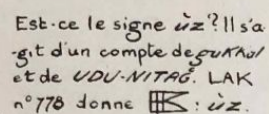 Est-ce le signe ùz? Il s'a
-git d'un compte de gukkal
et de UDU-NITAĜ. LAK
n°778 donne : ùz.